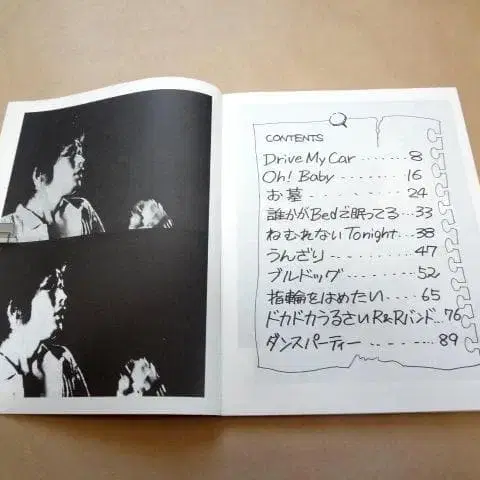 CONTENTS
Drive My Car ...... 8
Oh! Baby ...... 16
お墓 ........ 24
誰かがBedで眠ってる...33
ねむれないTonight...38
うんざり ........ 47
ブルドッグ ...... 52
指輪をはめたい .... 65
ドカドカうるさいR&Rバンド...76
ダンスパーティー ...... 89